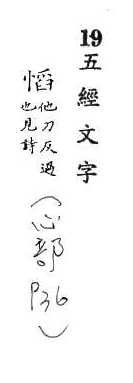 19五經文字
慆他刀反過
也見詩
(心部
P36)